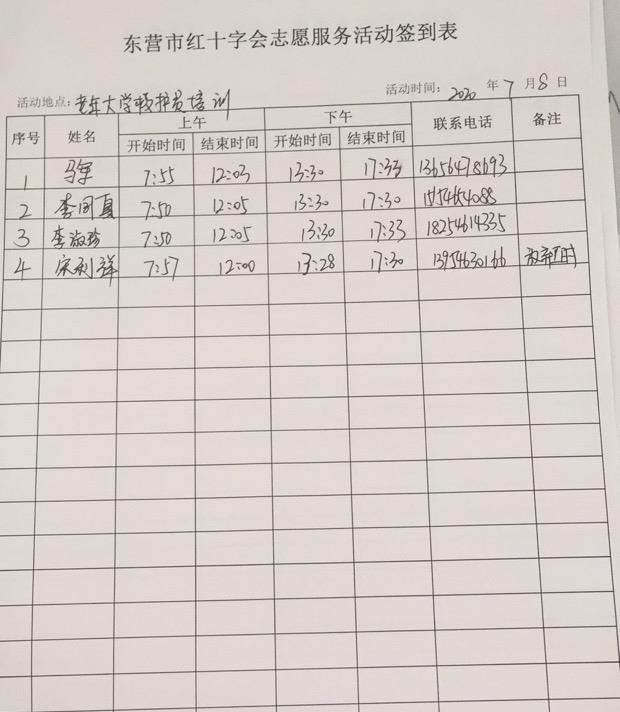 东营市红十字会志愿服务活动签到表
活动地点：老年大学 护员培训 活动时间：2020 年 7 月 8 日
序号 姓名 上午 下午 联系电话 备注
开始时间 结束时间 开始时间 结束时间
1 马军 7:55 12:03 13:30 17:33 13656478693
2 李同夏 7:50 12:05 13:30 17:30
3 李淑珍 7:50 12:05 13:30 17:33 18254614335
4 宋利祥 7:57 12:00 13:28 17:30 13954630166